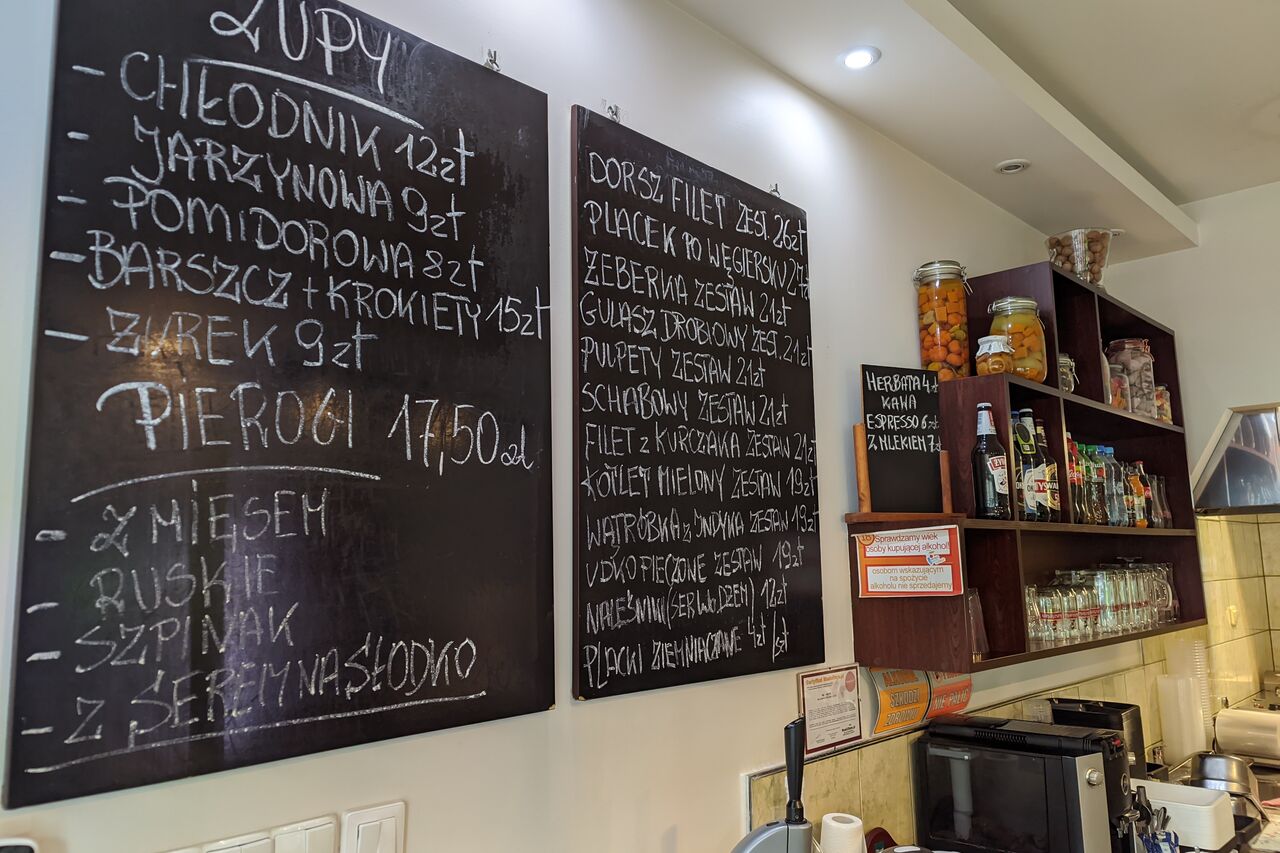 ZUPY
- CHŁODNIK 12zł
- JARZYNOWA 9zł
- POMIDOROWA 8zł
- BARSZCZ + KROKIETY 15zł
- ŻUREK 9zł
PIEROGI 17,50zł
- Z MIĘSEM
- RUSKIE
- SZPINAK
- Z SEREM NA SŁODKO
DORSZ FILET ZEST. 26zł
PLACEK PO WĘGIERSKU 27zł
ŻEBERKA ZESTAW 21zł
GULASZ DROBIOWY ZEST. 21zł
PULPETY ZESTAW 21zł
SCHABOWY ZESTAW 21zł
FILET Z KURCZAKA ZESTAW 21zł
KOTLET MIELONY ZESTAW 19zł
WĄTRÓBKA Z INDYKA ZESTAW 19zł
UDKO PIECZONE ZESTAW 19zł
NALEŚNIKI (SER LUB DŻEM) 12zł
PLACKI ZIEMNIACZANE 4zł/szt
HERBATA 4zł
KAWA
ESPRESSO 6zł
Z MLEKIEM 7zł
18 Sprawdzamy wiek
osoby kupującej alkohol!
osobom wskazującym
na spożycie
alkoholu nie sprzedajemy
SZKODZI
ZDROWIU
NIE PALIĆ